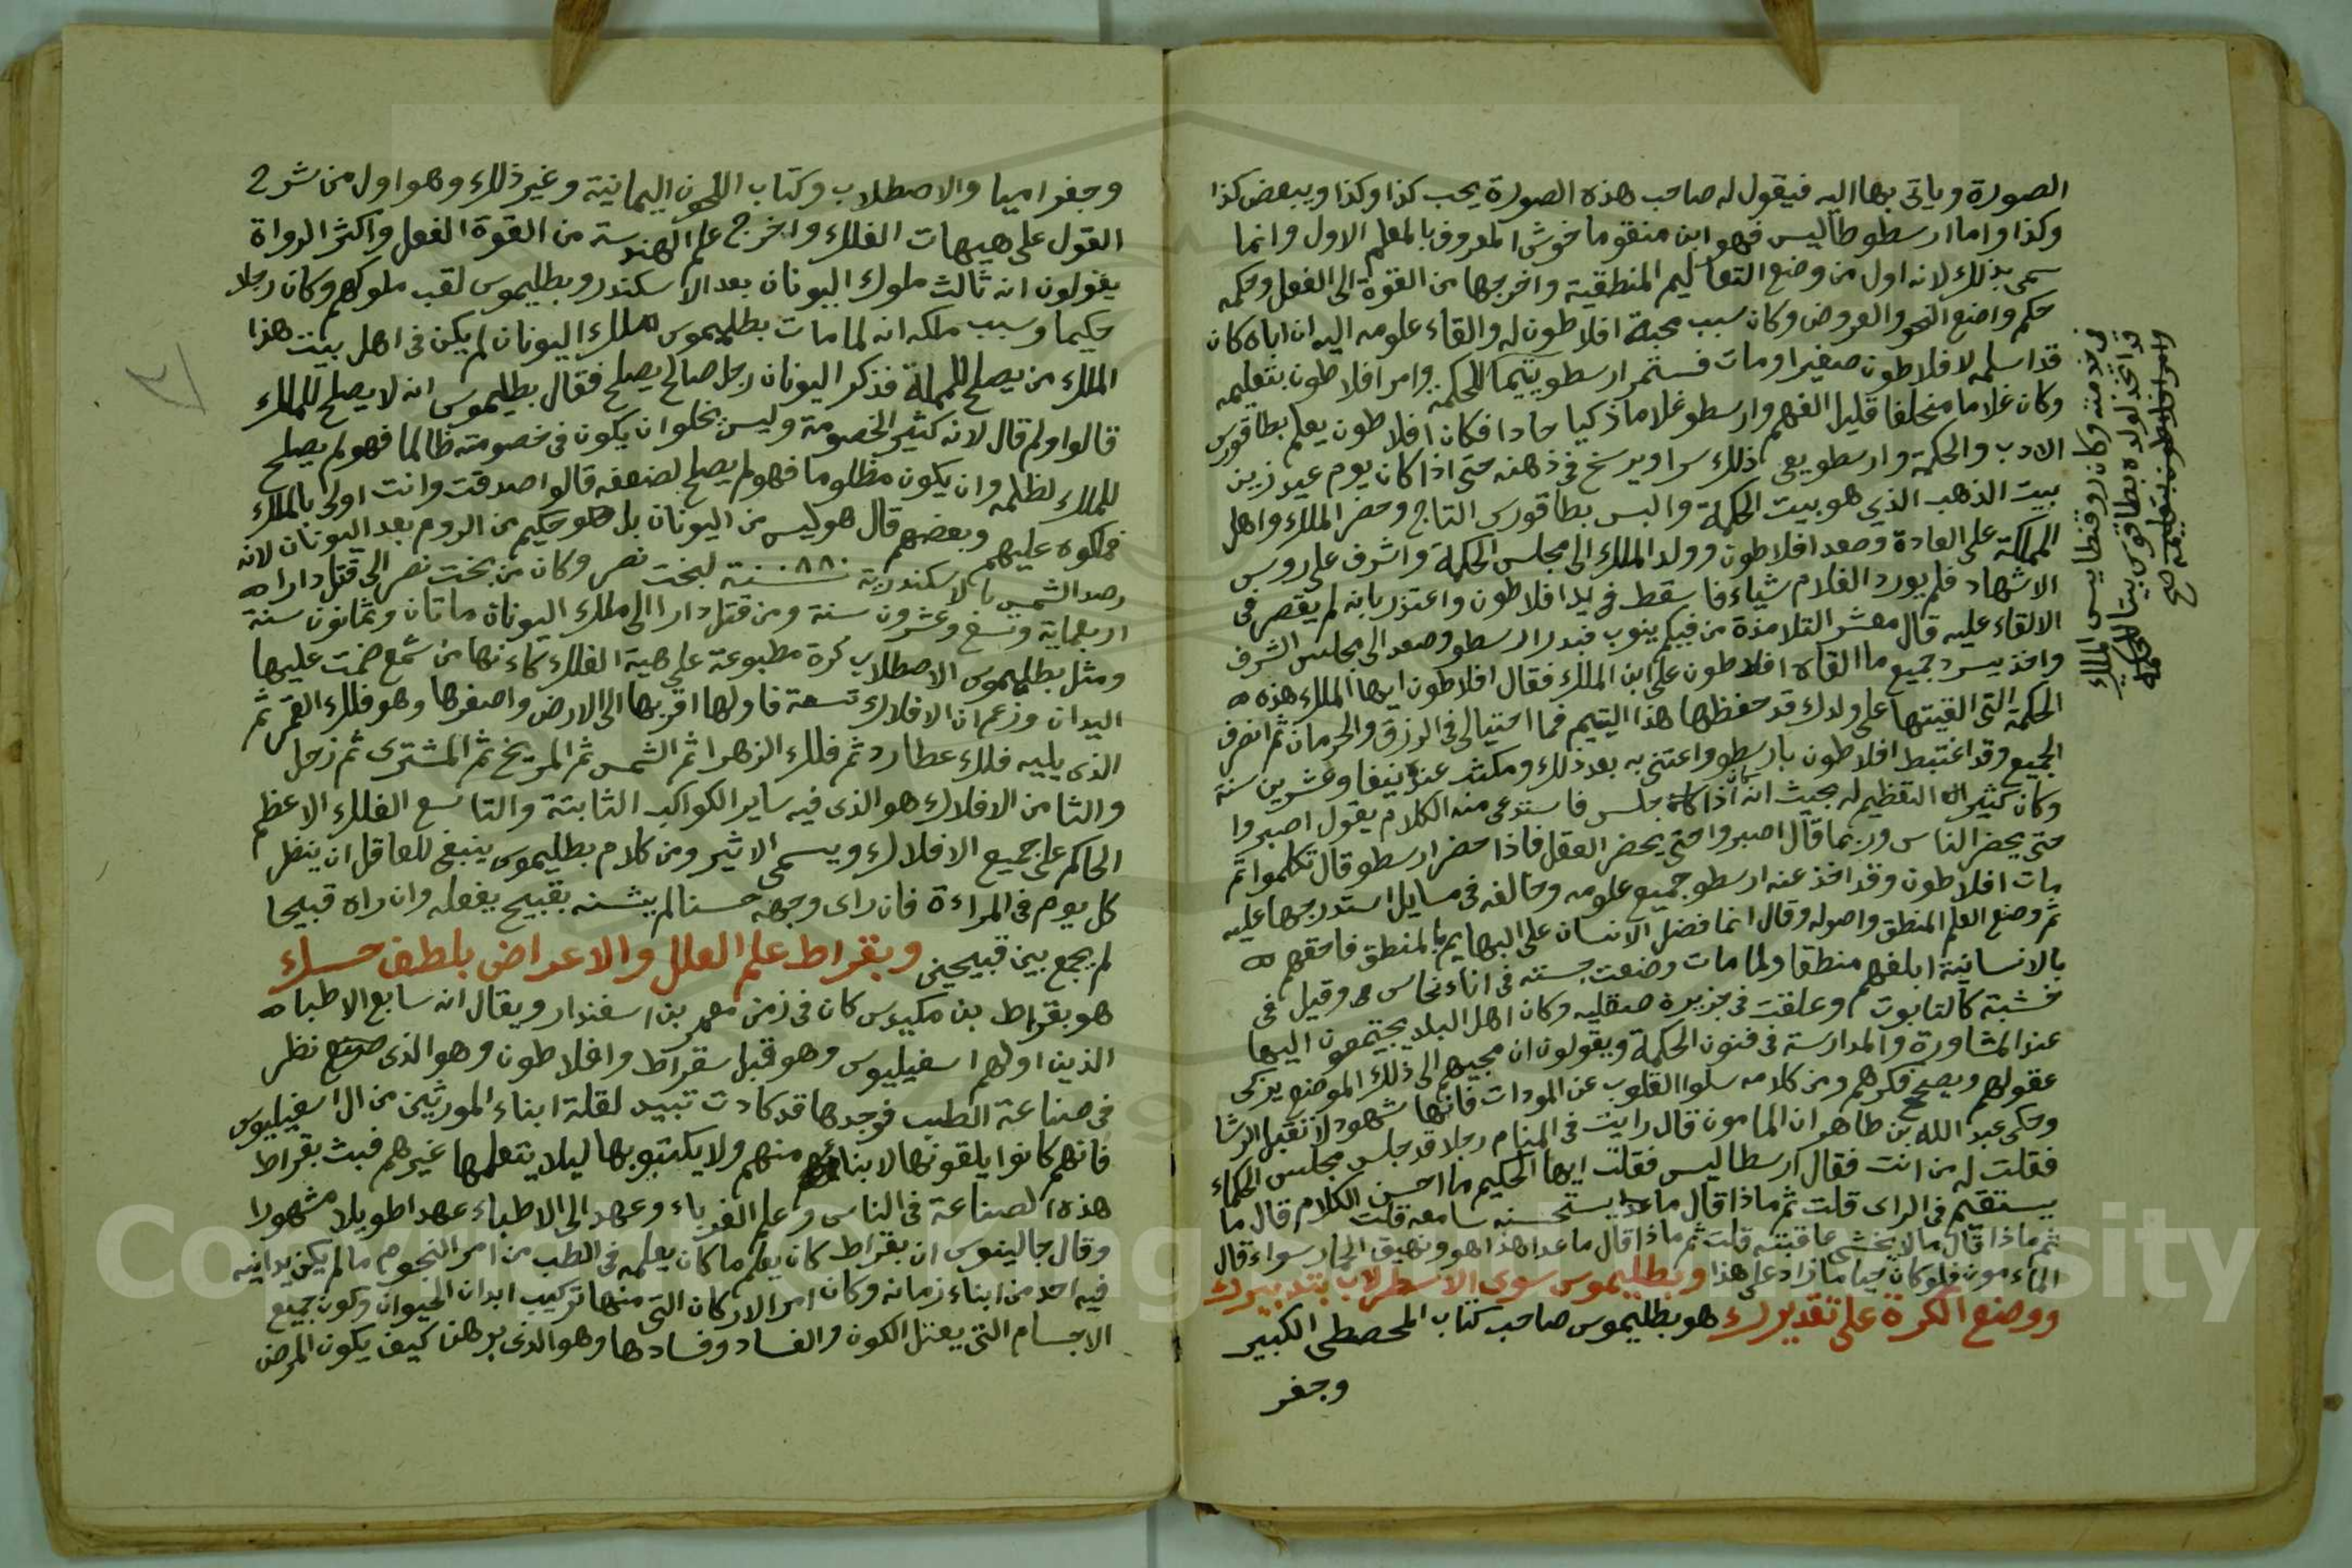 الصورة وياتى بها اليه فيقول له صاحب هذه الصورة يحب كذا وكذا ويبغض كذا
وكذا واما ارسطوطاليس فهو ابن منقوماخوش المعروف بالمعلم الاول وانما
سمى بذلك لانه اول من وضع التعاليم المنطقية واخرجها من القوة الى الفعل وحكمه
حكم واضع النحو والعروض وكان سبب محبة افلاطون له والقاء علومه اليه ان اباه كان
قد اسلمه لافلاطون صغيرا ومات فستمر ارسطو يتيما للحكمة وامر افلاطون بتعليمه
وكان غلاما متخلفا قليل الفهم وارسطو غلاما ذكيا حادا فكان افلاطون يعلم بطاقورس
الادب والحكمة وارسطو يعى ذلك سرا ويرسخ فى ذهنه حتى اذا كان يوم عيد زين
بيت الذهب الذى هو بيت الحكمة والبس بطاقورس التاج وحضر الملك واهل
المملكة على العادة وصعد افلاطون وولد الملك الى مجلس الحكمة واشرف على روس
الاشهاد فلم يورد الغلام شياء فاسقط فى يد افلاطون واعتذر بانه لم يقصر فى
الالقاء عليه قال معشر التلامذة من فيكم ينوب فبدر ارسطو وصعد الى مجلس الشرف
واخذ يسرد جميع ما القاه افلاطون على ابن الملك فقال افلاطون ايها الملك هذه
الحكمة التى القيتها على ولدك قد حفظها هذا اليتيم فما احتيالى فى الرزق والحرمان ثم انصرف
الجميع وقد اغتبط افلاطون بارسطو واعتنى به بعد ذلك ومكث عنده نيفا وعشرين سنة
وكان كثير التعظيم له بحيث انه اذا كان جلس فاستدعى منه الكلام يقول اصبروا
حتى يحضر الناس وربما قال اصبروا حتى يحضر العقل فاذا حضر ارسطو قال تكلموا ثم
مات افلاطون وقد اخذ عنه ارسطو جميع علومه وخالفه فى مسايل استدرجها عليه
ثم وضع العلم المنطق واصوله وقال انما فضل الانسان على البهايم بالمنطق فاحقهم
بالانسانية ابلغهم منطقا ولما مات وضعت جسته فى اناء نحاس وقيل فى
خشبة كالتابوت وعلقت فى جزيرة صقليه وكان اهل البلد يجتمعون اليها
عند المشاورة والمدارسة فى فنون الحكمة ويقولون ان مجيهم الى ذلك الموضع يزكى
عقولهم ويصحح فكرهم ومن كلامه سلوا القلوب عن المودات فانها شهود لا تقبل الرشا
وحكى عبد الله بن طاهر ان المامون قال رايت فى المنام رجلا قد جلس مجلس الحكماء
فقلت له من انت فقال ارسطاليس فقلت ايها الحكيم ما احسن الكلام قال ما
يستقيم فى الراى قلت ثم ماذا قال ما يستحسنه سامعه قلت
ثم ماذا قال ما لا يخشى عاقبته قلت ثم ماذا قال ما عدا هذا هو ونهيق الحمار سواء قال
الماءمون فلو كان حيا ما زاد على هذا وبطليموس سوى الاسطرلاب بتدبيرك
ووضع الكرة على تقديرك هو بطليموس صاحب كتاب المحصطى الكبير
وجغر
فى خدمته وكان روفطايس الملك
قد اتخذ لولده بطاقورس بيتا للحكمة
وامر افلاطون بتعليمه صح
وجغراميا والاصطلاب وكتاب اللحون اليمانية وغير ذلك وهو اول من شرح
القول على هيهات الفلك واخرج علم الهندسة من القوة الفعل واكثر الرواة
يقولون انه ثالث ملوك اليونان بعد الاسكندر وبطليموس لقب ملوكهم وكان رجلا
حكيما وسبب ملكه انه لما مات بطليموس ملك اليونان لم يكن فى اهل بيت هذا
الملك من يصلح للمملة فذكر اليونان رجل صالح يصلح فقال بطليموس انه لا يصلح للملك
قالوا ولم قال لانه كثير الخصومة وليس يخلوا ان يكون فى خصومته ظالما فهو لم يصلح
للملك لظلمه وان يكون مظلوما فهو لم يصلح لضعفه قالوا صدقت وانت اولى بالملك
فملكوه عليهم وبعضهم قال هو ليس من اليونان بل هو حكيم من الروم بعد اليونان لانه
رصد الشمس بالاسكندرية سنة ٨٨٠ لبخت نصر وكان من بخت نصر الى قتل دارا
اربعماية وتسع وعشرون سنة ومن قتل دارا الى ملك اليونان ماتان وثمانون سنة
ومثل بطليموس الاصطلاب كرة مطبوعة على هية الفلك كاءنها من شمع ضمت عليها
اليدان وزعم ان الافلاك تسعة فاولها اقربها الى الارض واصغرها وهو فلك القمر ثم
الذى يليه فلك عطارد ثم فلك الزهرا ثم الشمس ثم المريخ ثم المشترى ثم زحل
والثامن الافلاك هو الذى فيه ساير الكواكب الثابتة والتاسع الفلك الاعظم
الحاكم على جميع الافلاك ويسمى الاثير ومن كلام بطليموس ينبغى للعاقل ان ينظر
كل يوم فى المراءة فان راى وجهه حسنا لم يشنه بقبيح يفعله وان راه قبيحا
لم يجمع بين قبيحين وبقراط علم العلل والاعراض بلطف حسك
هو بقراط بن مكيدس كان فى زمن معمر بن اسفندار ويقال انه سابع الاطباء
الذين اولهم اسفيليوس وهو قبل سقراط وافلاطون وهو الذى نظر
فى صناعة الطب فوجدها قد كادت تبيد لقلة ابناء المورثين من ال اسفيليوس
فانهم كانوا يلقونها لابنائهم منهم ولا يكتبو بها ليلا يتعلمها غيرهم فبث بقراط
هذه الصناعة فى الناس وعلم الغرباء وعهد الى الاطباء عهدا طويلا مشهورا
وقال جالينوس ان بقراط كان يعلم ما كان يعلمه فى الطب من امر النجوم ما لم يكن يدانيه
فيه احد من ابناء زمانه وكان امر الاركان التى منها تركيب ابدان الحيوان وكون جميع
الاجسام التى يعتل الكون والفساد وفسادها وهو الذى برهن كيف يكون المرض